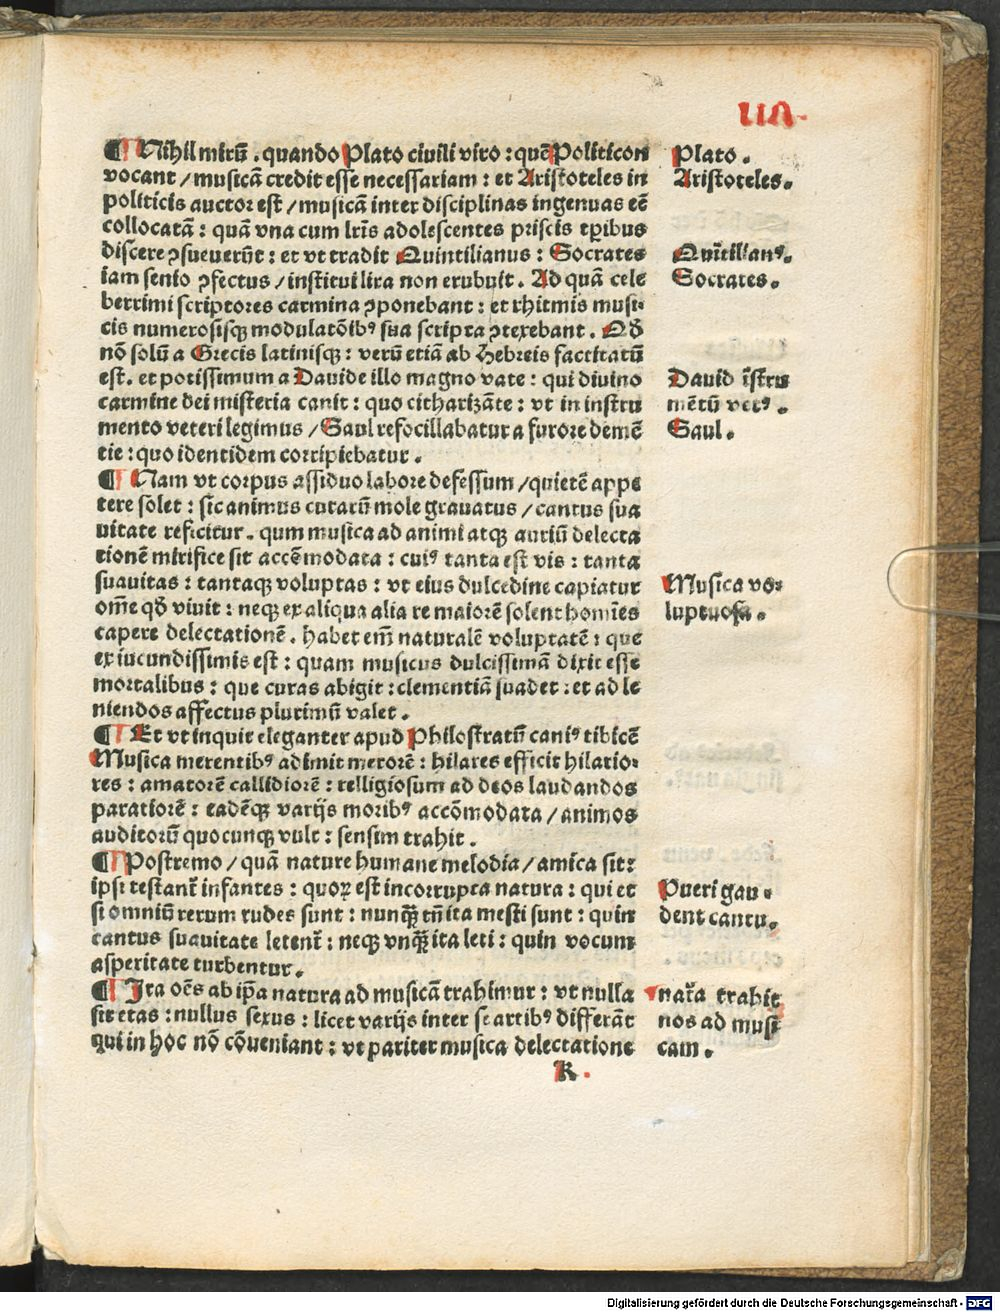 ¶ Nihil mirū . quando Plato ciuili viro : quē Politicon
vocant / musicā credit esse necessariam : et Aristoteles in
politicis auctor est / musicā inter disciplinas ingenuas eē
collocatā : quā vna cum lr̄is adolescentes priscis tp̄ribus
discere ꝯsueuerūt : et vt tradit Quintilianus : Socrates
iam senio ꝯfectus / institui lira non erubuit . Ad quā cele
berrimi scriptores carmina ꝯponebant : et rhitmis musi-
cis numerosisqꝫ modulatōibꝰ sua scripta ꝯtexebant . Qd̄
nō solū a Grecis latinisqꝫ : verū etiā ab Hebreis factitatū
est . et potissimum a Dauide illo magno vate : qui diuino
carmine dei misteria canit : quo citharizāte : vt in instru
mento veteri legimus / Saul refocillabatur a furore demē
tie : quo identidem corripiebatur .
¶ Nam vt corpus assiduo labore defessum / quietē appe
tere solet : sic animus curarū mole grauatus / cantus sua
uitate reficitur . qum musica ad animi atqꝫ auriū delecta
tionē mirifice sit accēmodata : cuiꝰ tanta est vis : tanta
suauitas : tantaqꝫ voluptas : vt eius dulcedine capiatur
om̄e qd̄ viuit : neqꝫ ex aliqua alia re maiorē solent homīes
capere delectationē . habet em̄ naturalē voluptatē : que
ex iucundissimis est : quam musicus dulcissimā dixit esse
mortalibus : que curas abigit : clementiā suadet : et ad le
niendos affectus plurimū valet .
¶ Et vt inquit eleganter apud Philostratū canꝰ tibicē
Musica merentibꝰ adimit merorē : hilares efficit hilario-
res : amatorē callidiorē : relligiosum ad deos laudandos
paratiorē : eadēqꝫ varijs moribꝰ accōmodata / animos
auditorū quocunqꝫ vult : sensim trahit .
¶ Postremo / quā nature humane melodia / amica sit :
ipsi testant̄ infantes : quoꝝ est incorrupta natura : qui et
si omniū rerum rudes sunt : nunqꝫ̄ tn̄ ita mesti sunt : quin
cantus suauitate letent̄ : neqꝫ vnqꝫ̄ ita leti : quin vocum
asperitate turbentur .
¶ Ita oēs ab ip̄a natura ad musicā trahimur : vt nulla
sit etas : nullus sexus : licet varijs inter se artibꝰ differāt
qui in hoc nō cōueniant : vt pariter musica delectatione
K .
Plato .
Aristoteles .
Quītilianꝰ .
Socrates .
Dauid īstru
mētū vetꝰ .
Saul .
Musica vo-
luptuosa .
Pueri gau-
dent cantu .
nat̄a trahit
nos ad musi
cam .
Digitalisierung gefördert durch die Deutsche Forschungsgemeinschaft - DFG